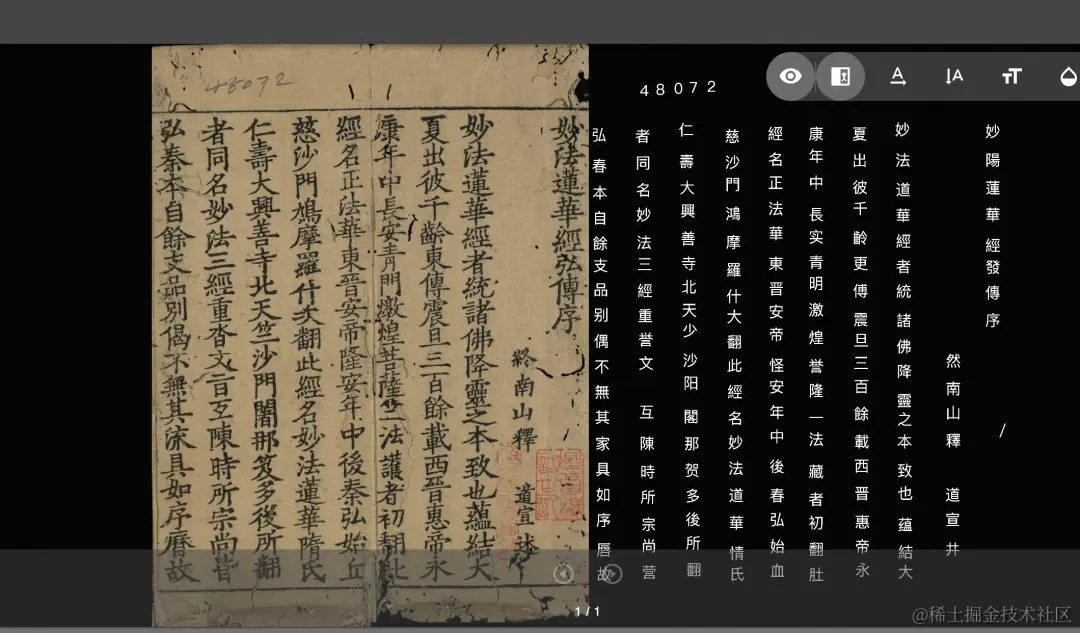 48072
妙法蓮華經弘傳序
終南山釋 道宣 述
妙法蓮華經者統諸佛降靈之本致也蘊結大
夏出彼千齡東傳震旦三百餘載西晉惠帝永
康年中長安青門燉煌菩薩竺法護者初翻此
經名正法華東晉安帝隆安年中後秦弘始丘
慈沙門鳩摩羅什次翻此經名妙法蓮華隋氏
仁壽大興善寺北天竺沙門闍那笈多後所翻
者同名妙法三經重沓文旨互陳時所宗尚皆
弘秦本自餘支品別偈不無其流具如序曆故
48072
妙陽蓮華經發傳序
然南山釋 道宣井
/
妙法道華經者統諸佛降靈之本致也蘊結大
夏出彼千齡更傅震旦三百餘載西晋惠帝永
康年中長实青明激煌誉隆一法藏者初翻肚
經名正法華東晋安帝怪安年中後春弘始血
慈沙門鴻摩羅什大翻此經名妙法道華情氏
仁壽大興善寺北天少沙阳閣那贺多後所翻
者同名妙法三經重誉文 互陳時所宗尚营
弘春本自餘支品别偶不無其家具如序唇故
1/1
@稀土掘金技术社区